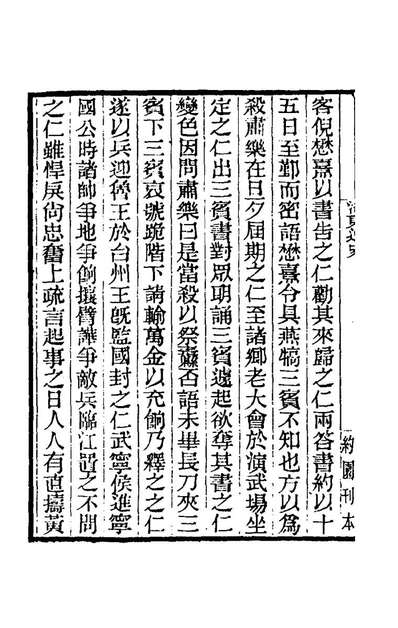 客倪懋熹以書吿之仁勸其來歸之仁兩答書約以十
五日至鄞而密語懋熹令具燕犒三賓不知也方以爲
殺肅樂在旦夕屆期之仁至諸鄕老大會於演武塲坐
定之仁出三賓書對眾朗誦三賓遽起欲奪其書之仁
變色因問肅樂曰是當殺以祭纛否語未畢長刀夾三
賓下三賓哀號跪階下請輸萬金以充餉乃釋之之仁
遂以兵迎魯王於台州王旣監國封之仁武寧侯進寧
國公時諸帥爭地爭餉攘臂譁爭敵兵臨江置之不問
之仁雖悍戾尙忠奮上疏言起事之日人人有直擣黃
約園刊本